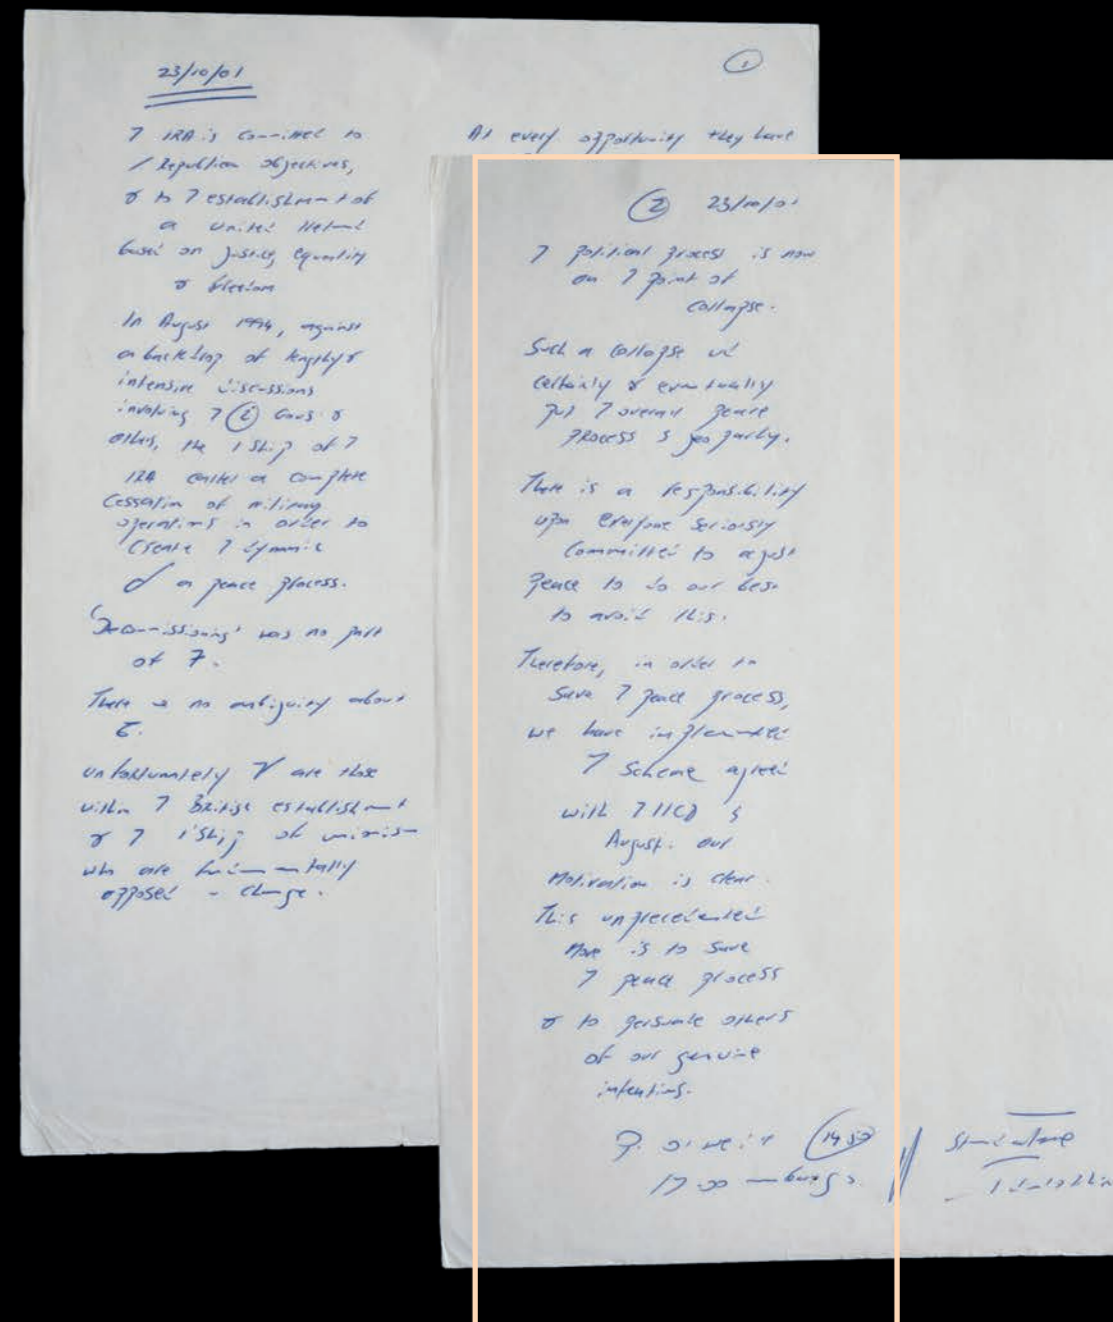 23/10/01
1
7 IRA is committed to
/ Republican objectives,
& to 7 establishment of
a united Ireland
based on justice, equality
& freedom
In August 1994, against
a backdrop of lengthy &
intensive discussions
involving 7 2 Govs &
others, the l'ship of 7
IRA called a complete
cessation of military
operations in order to
create 7 dynamic
of a peace process.
'Decommissioning' was no part
of 7.
There is no ambiguity about
unfortunately are those
within 7 British establishment
& 7 l'ship of unionism
who are fundamentally
opposed change.
At every opportunity they have
2 23/10/01
7 political process is now
on 7 point of
collapse.
Such a collapse wd
certainly & eventually
put 7 overall peace
process jeopardy.
There is a responsibility
upon everyone seriously
committed to a just
peace to do our best
to avoid this.
Therefore, in order to
save 7 peace process,
we have implemented
7 scheme agreed
with 7 IICD
August. our
motivation is clear.
This unprecedented
move is to save
7 peace process
& to persuade others
of our genuine
intentions.
P. O'Neill